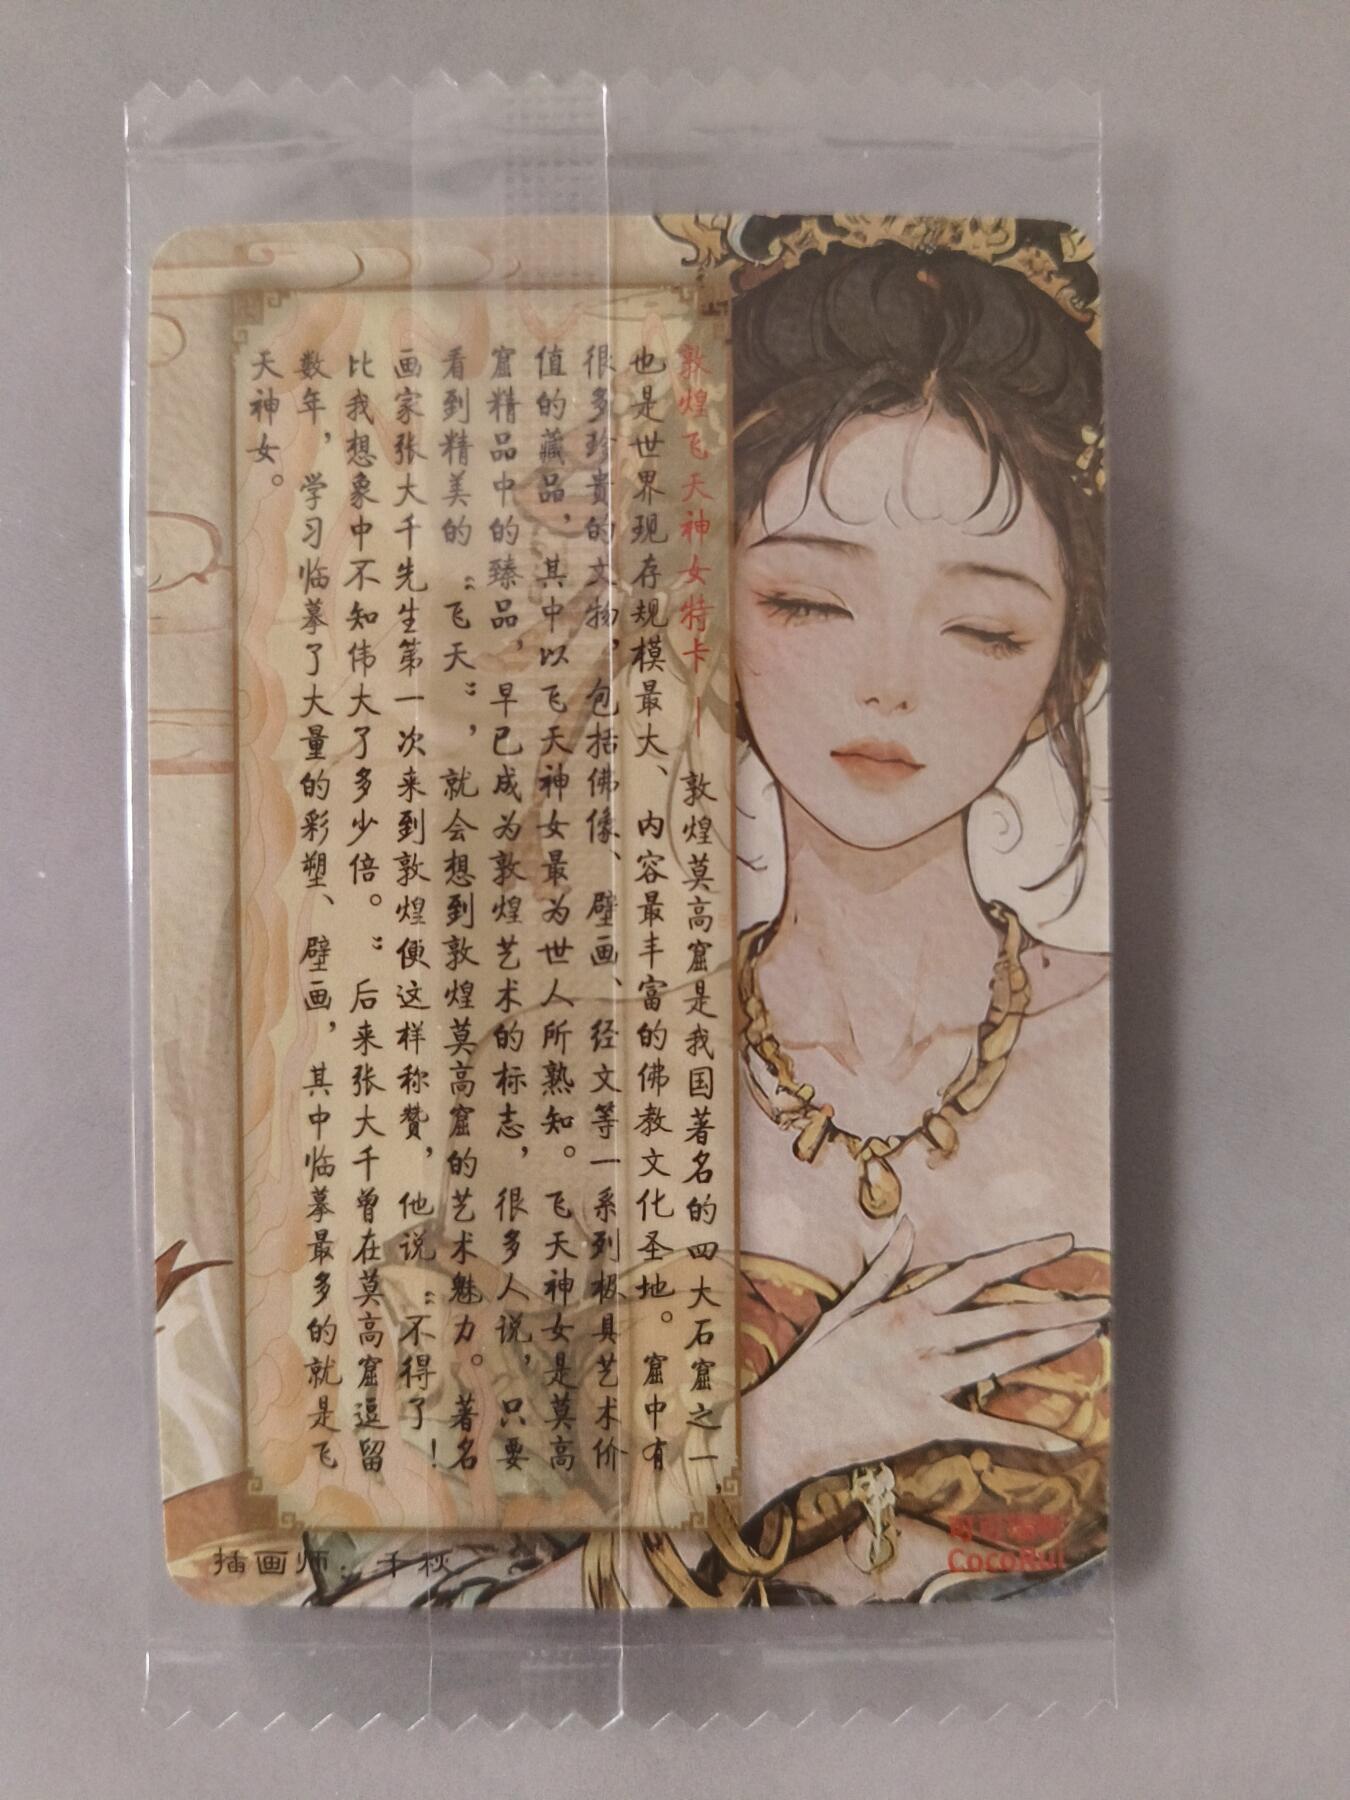 敦煌飞天神女特卡—敦煌莫高窟是我国著名的四大石窟之一，
也是世界现存规模最大、内容最丰富的佛教文化圣地。窟中有
很多珍贵的文物，包括佛像、壁画、经文等一系列极具艺术价
值的藏品，其中以飞天神女最为世人所熟知。飞天神女是莫高
窟精品中的臻品，早已成为敦煌艺术的标志，很多人说，只要
看到精美的“飞天”，就会想到敦煌莫高窟的艺术魅力。著名
画家张大千先生第一次来到敦煌便这样称赞，他说“不得了！
比我想象中不知伟大了多少倍。”后来张大千曾在莫高窟逗留
数年，学习临摹了大量的彩塑、壁画，其中临摹最多的就是飞
天神女。
插画师：千秋
CocoRui